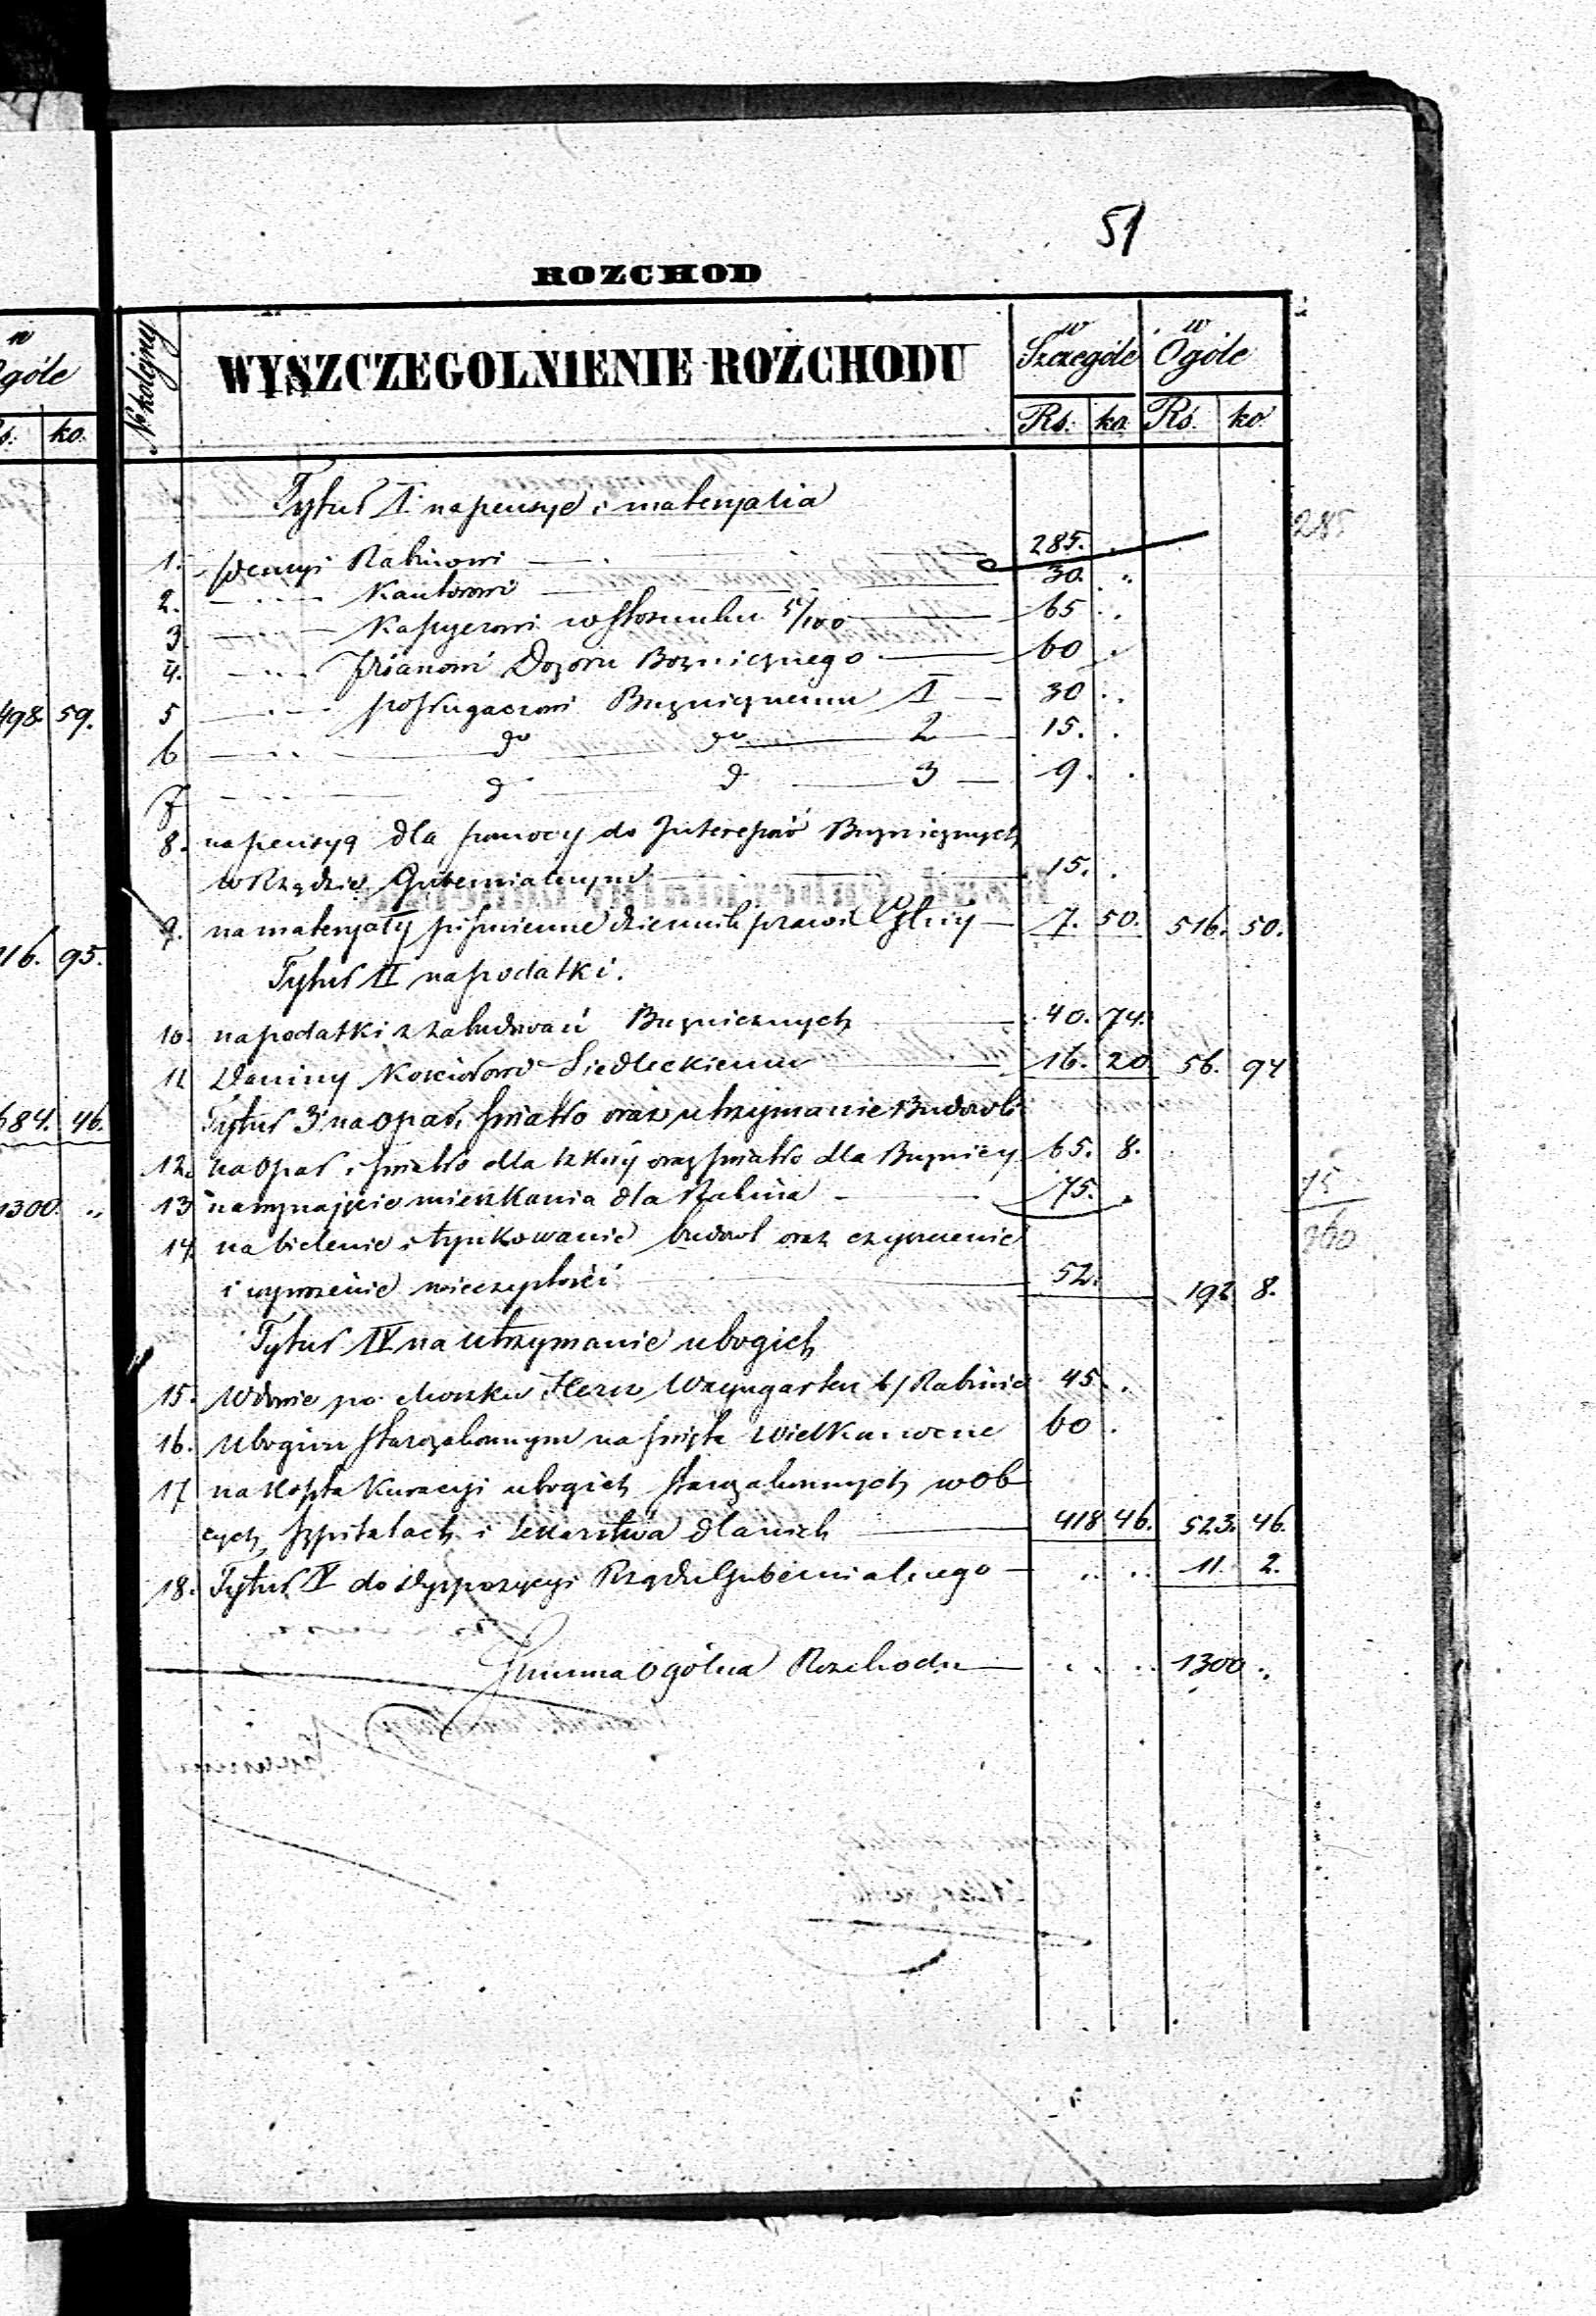 51
ROZCHOD
w Ogóle
Rs. ko.
498. 59.
216. 95.
584. 46.
1300. „
№ kolejny
WYSZCZEGOLNIENIE ROZCHODU
w Szczególe
w Ogóle
Rs. ko. Rs. ko.
Tytuł I. na pensye i materyalia
1. pensyi Rabinowi 285. „ 285
2. „ Kantorowi 30. „
3 „ Kassyerowi w stosunku 5/100 65 „
4. „ Pisarzowi Dozoru Bozniczego 60 „
5 „ posługaczowi Buznicznemu 1 30 „
6 „ do do 2 15. „
7 „ d d 3 9. „
8. na pensyą dla pomocy do Interessów Buznicznych
w Rządzie Gubernialnym 15. „
9. na materyały piśmienne dziennik praw 7. 50. 516. 50.
Tytuł II na podatki.
10. na podatki z zabudowań Buznicznych 40. 74.
11. Daniny Kościołowi Siedleckiemu 16. 20 56. 94
Tytuł 3 na opał, światło oraz utrzymanie Budowli
12. na opał i światło dla szkoły oraz światło dla Buznicy 65. 8.
13 na wynajęcie mieszkania dla Rabina 75. „ 75
360
14. na bielenie i tynkowanie budowl oraz czyszczenie
i wywożenie nieczystości 52. 192 8.
Tytuł IV na utrzymanie ubogich
15. Wdowie po Moszku Hersz b/ Rabinie 45 „
16. Ubogim starozakonnym na święta wielkanocne 60 „
17 na koszta kuracyi ubogich starozakonnych w ob
cych szpitalach i lekarstwa dla nich 418 46. 523. 46.
18. Tytuł V do dyspozycyi Rządu Gubernialnego „ „ 11. 2.
Summa ogólna Rozchodu „ „ 1300 „